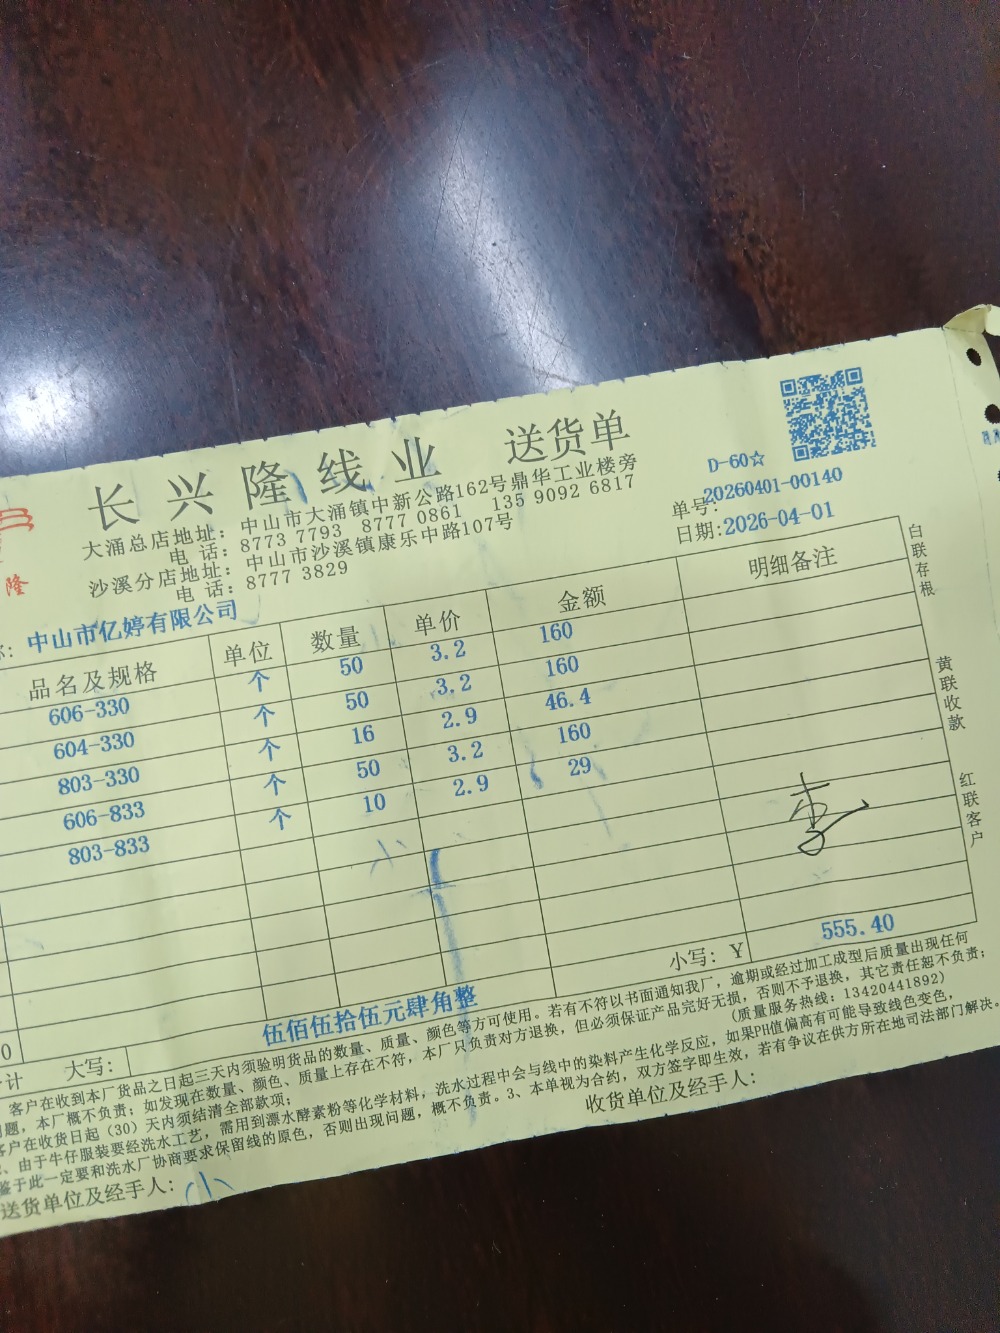 长兴隆线业 送货单
隆
大涌总店地址: 中山市大涌镇中新公路162号鼎华工业楼旁
电 话: 8773 7793 8777 0861 135 9092 6817
沙溪分店地址: 中山市沙溪镇康乐中路107号
电 话: 8777 3829
D-60☆
单号: 20260401-00140
日期: 2026-04-01
称: 中山市亿婷有限公司
品名及规格 单位 数量 单价 金额 明细备注
606-330 个 50 3.2 160
604-330 个 50 3.2 160
803-330 个 16 2.9 46.4
606-833 个 50 3.2 160
803-833 个 10 2.9 29
白联存根
黄联收款
红联客户
小写: Y 555.40
计 大写: 伍佰伍拾伍元肆角整
客户在收到本厂货品之日起三天内须验明货品的数量、质量、颜色等方可使用。若有不符以书面通知我厂,逾期或经过加工成型后质量出现任何
问题,本厂概不负责;如发现在数量、颜色、质量上存在不符,本厂只负责对方退换,但必须保证产品完好无损,否则不予退换,其它责任恕不负责;
客户在收货日起(30)天内须结清全部款项; (质量服务热线:13420441892)
、由于牛仔服装要经洗水工艺,需用到漂水酵素粉等化学材料,洗水过程中会与线中的染料产生化学反应,如果PH值偏高有可能导致线色变色,
鉴于此一定要和洗水厂协商要求保留线的原色,否则出现问题,概不负责。3、本单视为合约,双方签字即生效,若有争议在供方所在地司法部门解决。
送货单位及经手人: 收货单位及经手人: